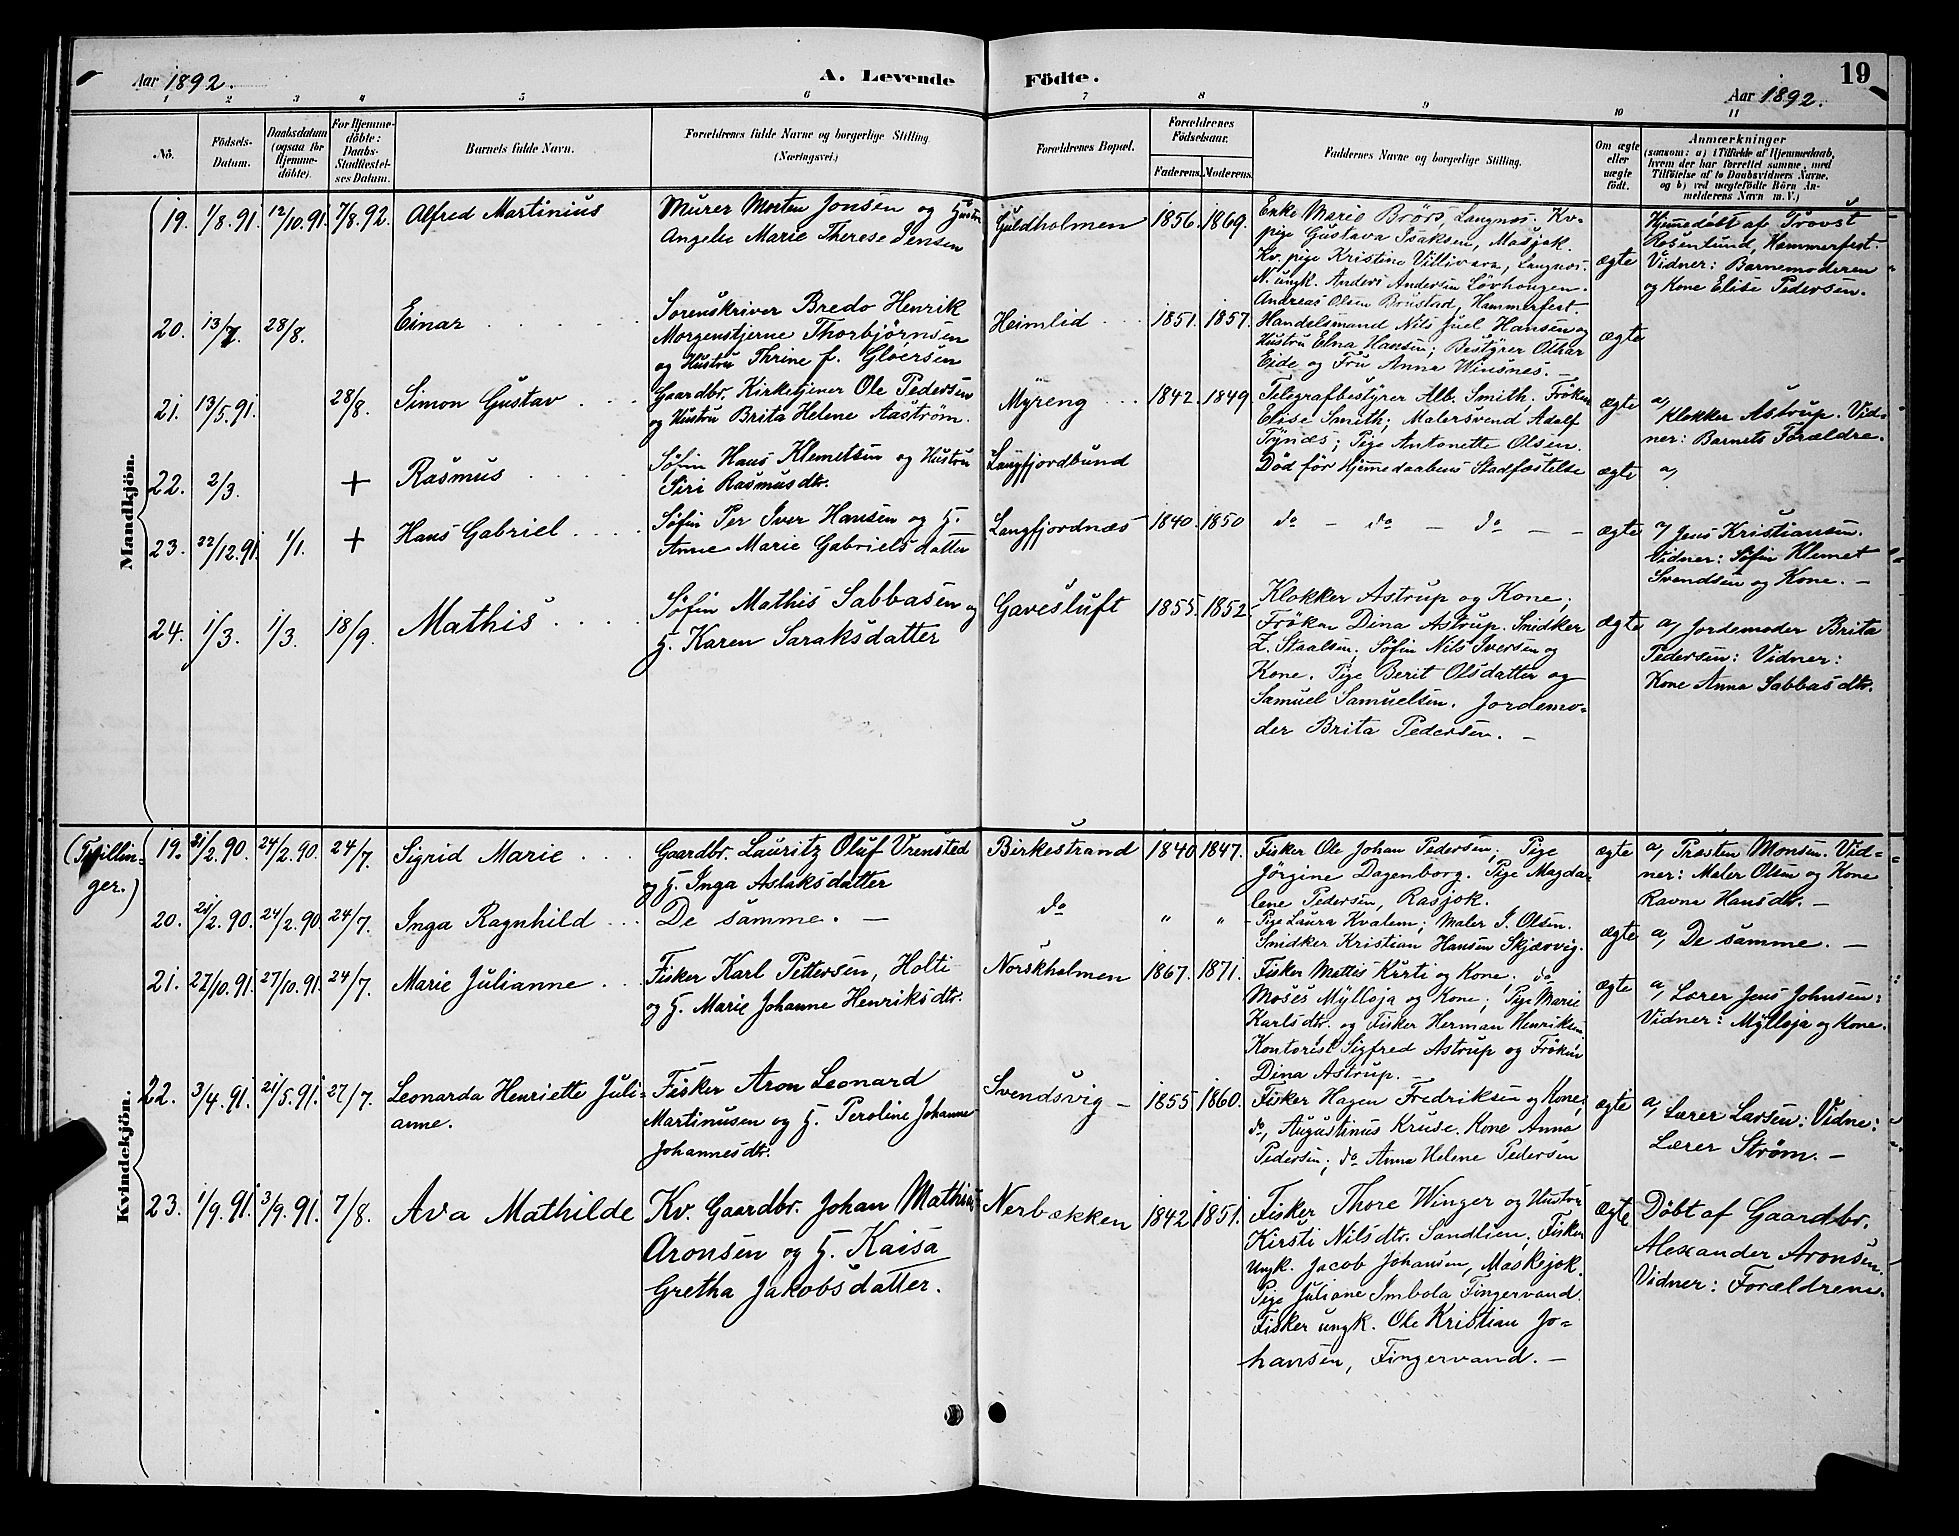 Aar 1892.
A. Levende Födte.
19
Aar 1892.
1 2 3 4 5 6 7 8 9 10 11
No.
Födsels-
Datum.
Daabsdatum
(ogsaa for
Hjemme-
döbte).
For Hjemme-
döbte:
Daabs-
Stadfæstel-
ses Datum.
Barnets fulde Navn.
Forældrenes fulde Navne og borgerlige Stilling
(Næringsvei.)
Forældrenes Bopæl.
Forældrenes
Födselsaar.
Faderens. Moderens.
Faddernes Navne og borgerlige Stilling.
Om ægte
eller
uægte
födt.
Anmærkninger
(saasom: a) i Tilfælde af Hjemmedaab,
hvem der har forrettet samme, med
Tilföielse af to Daabsvidners Navne,
og b) ved uægtefödte Börn An-
melderens Navn m. V.)
Mandkjön.
19. 1/8.91. 12/10.91. 7/8.92. Alfred Martinius
Murer Morten Jonsen og Hustru
Angelie Marie Therese Jensen
Guldholmen 1856. 1869.
Enke Marie Brörs, Langnes. Kv-
pige Gustava Isaksen, Masjok.
Kv. pige Kristine Villivara, Langnes.
N. ungk. Anders Andersen Lövhaugen.
Andreas Olsen Brustad, Hammerfest.
ægte
Hjemmedöbt af Provst
Rosenlund, Hammerfest.
Vidner: Barnemoderen
og Kone Elise Pedersen.
20. 13/7. 28/8. Einar
Sorenskriver Bredo Henrik
Morgenstjerne Thorbjörnsen
og Hustru Thrine f. Gloersen
Heimlid 1851. 1857.
Handelsmand Nils Juel Hansen og
Hustru Elna Hansen; Bestyrer Othar
Eide og Fru Anna Winsnes. –
ægte
21. 13/5.91. 28/8. Simon Gustav
Gaardbr. Kirketjener Ole Pedersen
og Hustru Brita Helene Aaström.
Myreng 1842. 1849
Telegrafbestyrer Alb. Smith. Fröken
Elise Smith; Malersvend Adolf
Tynæs; Pige Antonette Olsen.
ægte
a, Klokker Astrup. Vid-
ner: Barnets Forældre.
22. 2/3. + Rasmus
Søfin Hans Klemetsen og Hustru
Siri Rasmusdtr.
Langfjordbund
Död før Hjemmedaabens Stadfæstelse
ægte a,
23. 22/12.91. 1/1. + Hans Gabriel
Søfin Per Iver Hansen og H.
Anne Marie Gabrielsdatter
Langfjordnæs 1840. 1850
do – do – do – –
ægte
a, Jens Kristiansen.
Vidner: Søfin Klemet
Svendsen og Kone. –
24. 1/3. 1/3. 18/9. Mathis
Søfin Mathis Sabbasen og
H. Karen Saraksdatter
Gavesluft 1855. 1852.
Klokker Astrup og Kone;
Fröken Dina Astrup. Snidker
Z. Staalsen. Søfin Nils Iversen og
Kone. Pige Berit Olsdatter og
Samuel Samuelsen. Jordemo-
der Brita Pedersen. –
ægte
a, Jordemoder Brita
Pedersen: Vidner:
Kone Anna Sabbasdtr.
Kvindekjön.
(Tvillin-
ger.)
19. 21/2.90. 24/2.90. 24/7. Sigrid Marie
Gaardbr. Lauritz Oluf Vrensted
og H. Inga Aslaksdatter
Birkestrand 1840 1847.
Fisker Ole Johan Pedersen; Pige
Jörgine Dagenborg. Pige Magda-
lene Pedersen, Rasjok.
ægte
a, Præsten Monsen. Vid-
ner: Maler Olsen og Kone
Ravna Hansdtr. –
20. 21/2.90. 24/2.90. 24/7. Inga Ragnhild
De samme. –
do " "
Pige Laura Kvalem; Maler S. Olsen.
Snidker Kristian Hansen Skjævvig.
ægte a, De samme. –
21. 27/10.91. 27/10.91. 24/7. Marie Julianne
Fisker Karl Pettersen, Holti
og H. Marie Johanne Henriksdtr.
Norskholmen 1867. 1871.
Fisker Mathis Kurti og Kone; do
Moses Myllöja og Kone; Pige Marie
Karlsdtr. og Fisker Herman Henriksen
Kontorist Sigfred Astrup og Fröken
Dina Astrup. –
ægte
a, Lærer Jens Johnsen:
Vidner: Myllöja og Kone.
22. 3/4.91. 21/5.91. 27/7. Leonarda Henriette Juli-
anne.
Fisker Aron Leonard
Martinusen og H. Peroline Johanne
Johannesdtr.
Svendsvig – 1855 1860.
Fisker Hagen Fredriksen og Kone;
do, Augustinus Kruse. Kone Anna
Pedersen; do Anna Helene Pedersen
ægte
a, Lærer Larsen: Vidne:
Lærer Strøm. –
23. 1/9.91. 3/9.91. 7/8. Ava Mathilde
Kv. Gaardbr. Johan Mathis
Aronsen og H. Kaisa
Gretha Jakobsdatter.
Nerbækken 1842 1851.
Fisker Thore Winger og Hustru
Kirsti Nilsdtr. Sandlien; Fisker
ungk. Jacob Johansen, Maskejok.
Pige Juliane Imbola Fingervand.
Fisker ungk. Ole Kristian Jo-
hansen, Fingervand. –
ægte
Döbt af Gaardbr.
Alexander Aronsen.
Vidner: Forældrene.